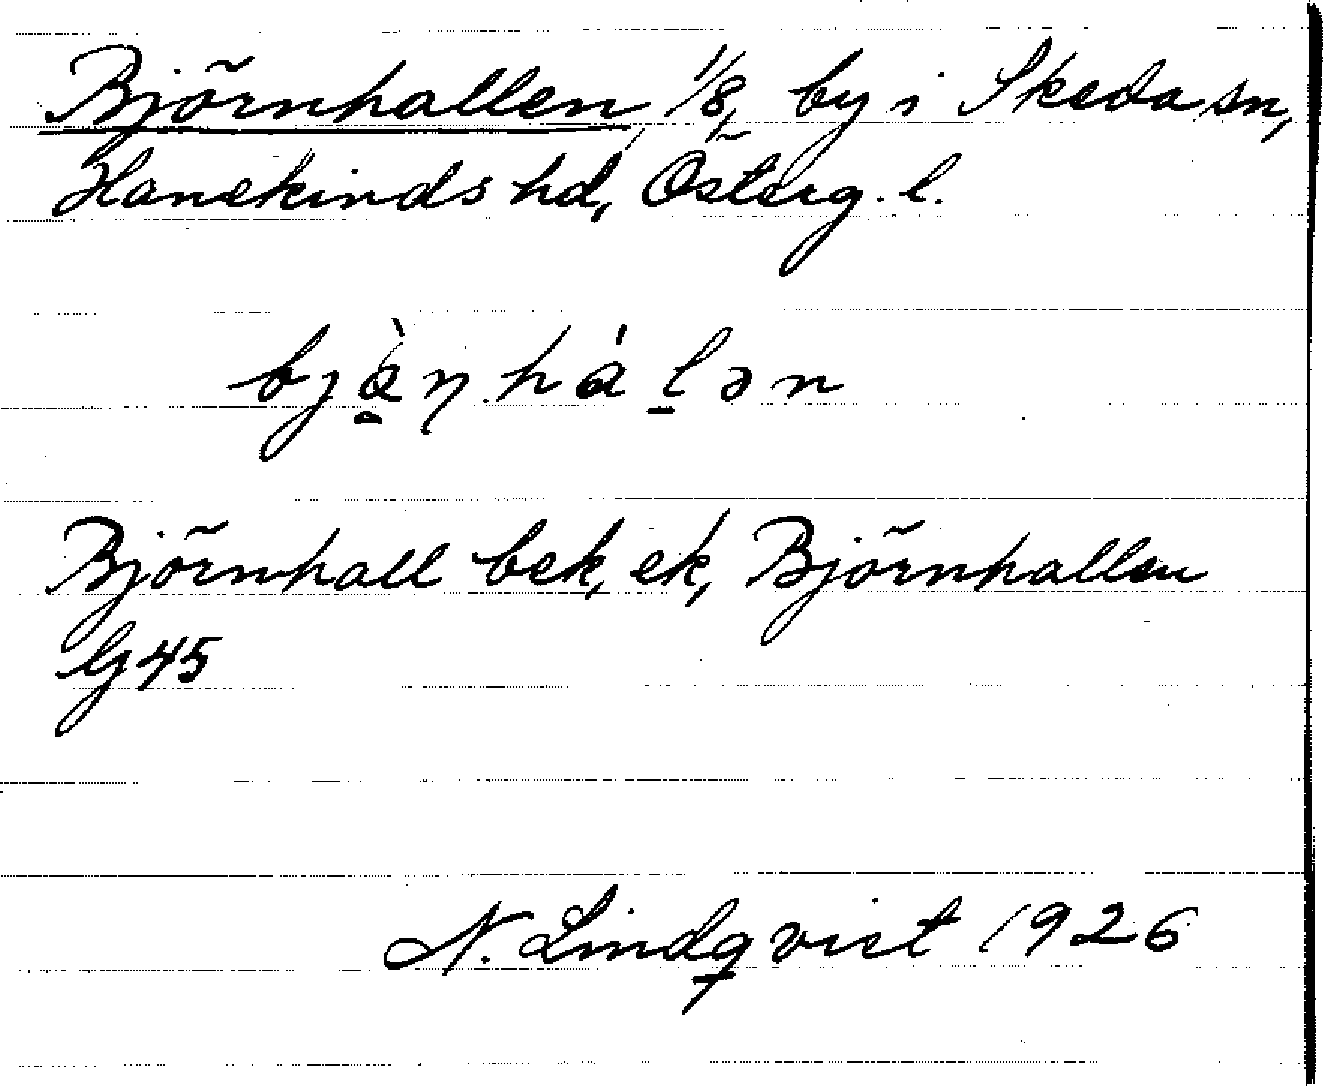 Björnhallen, 1/8, by i Skeda sn,
Hanekinds hd, Österg. l.
bjɑ̱̀ɳhálə̱n
Björnhall bek, ek, Björnhallen
G 45
N. Lindqvist 1926